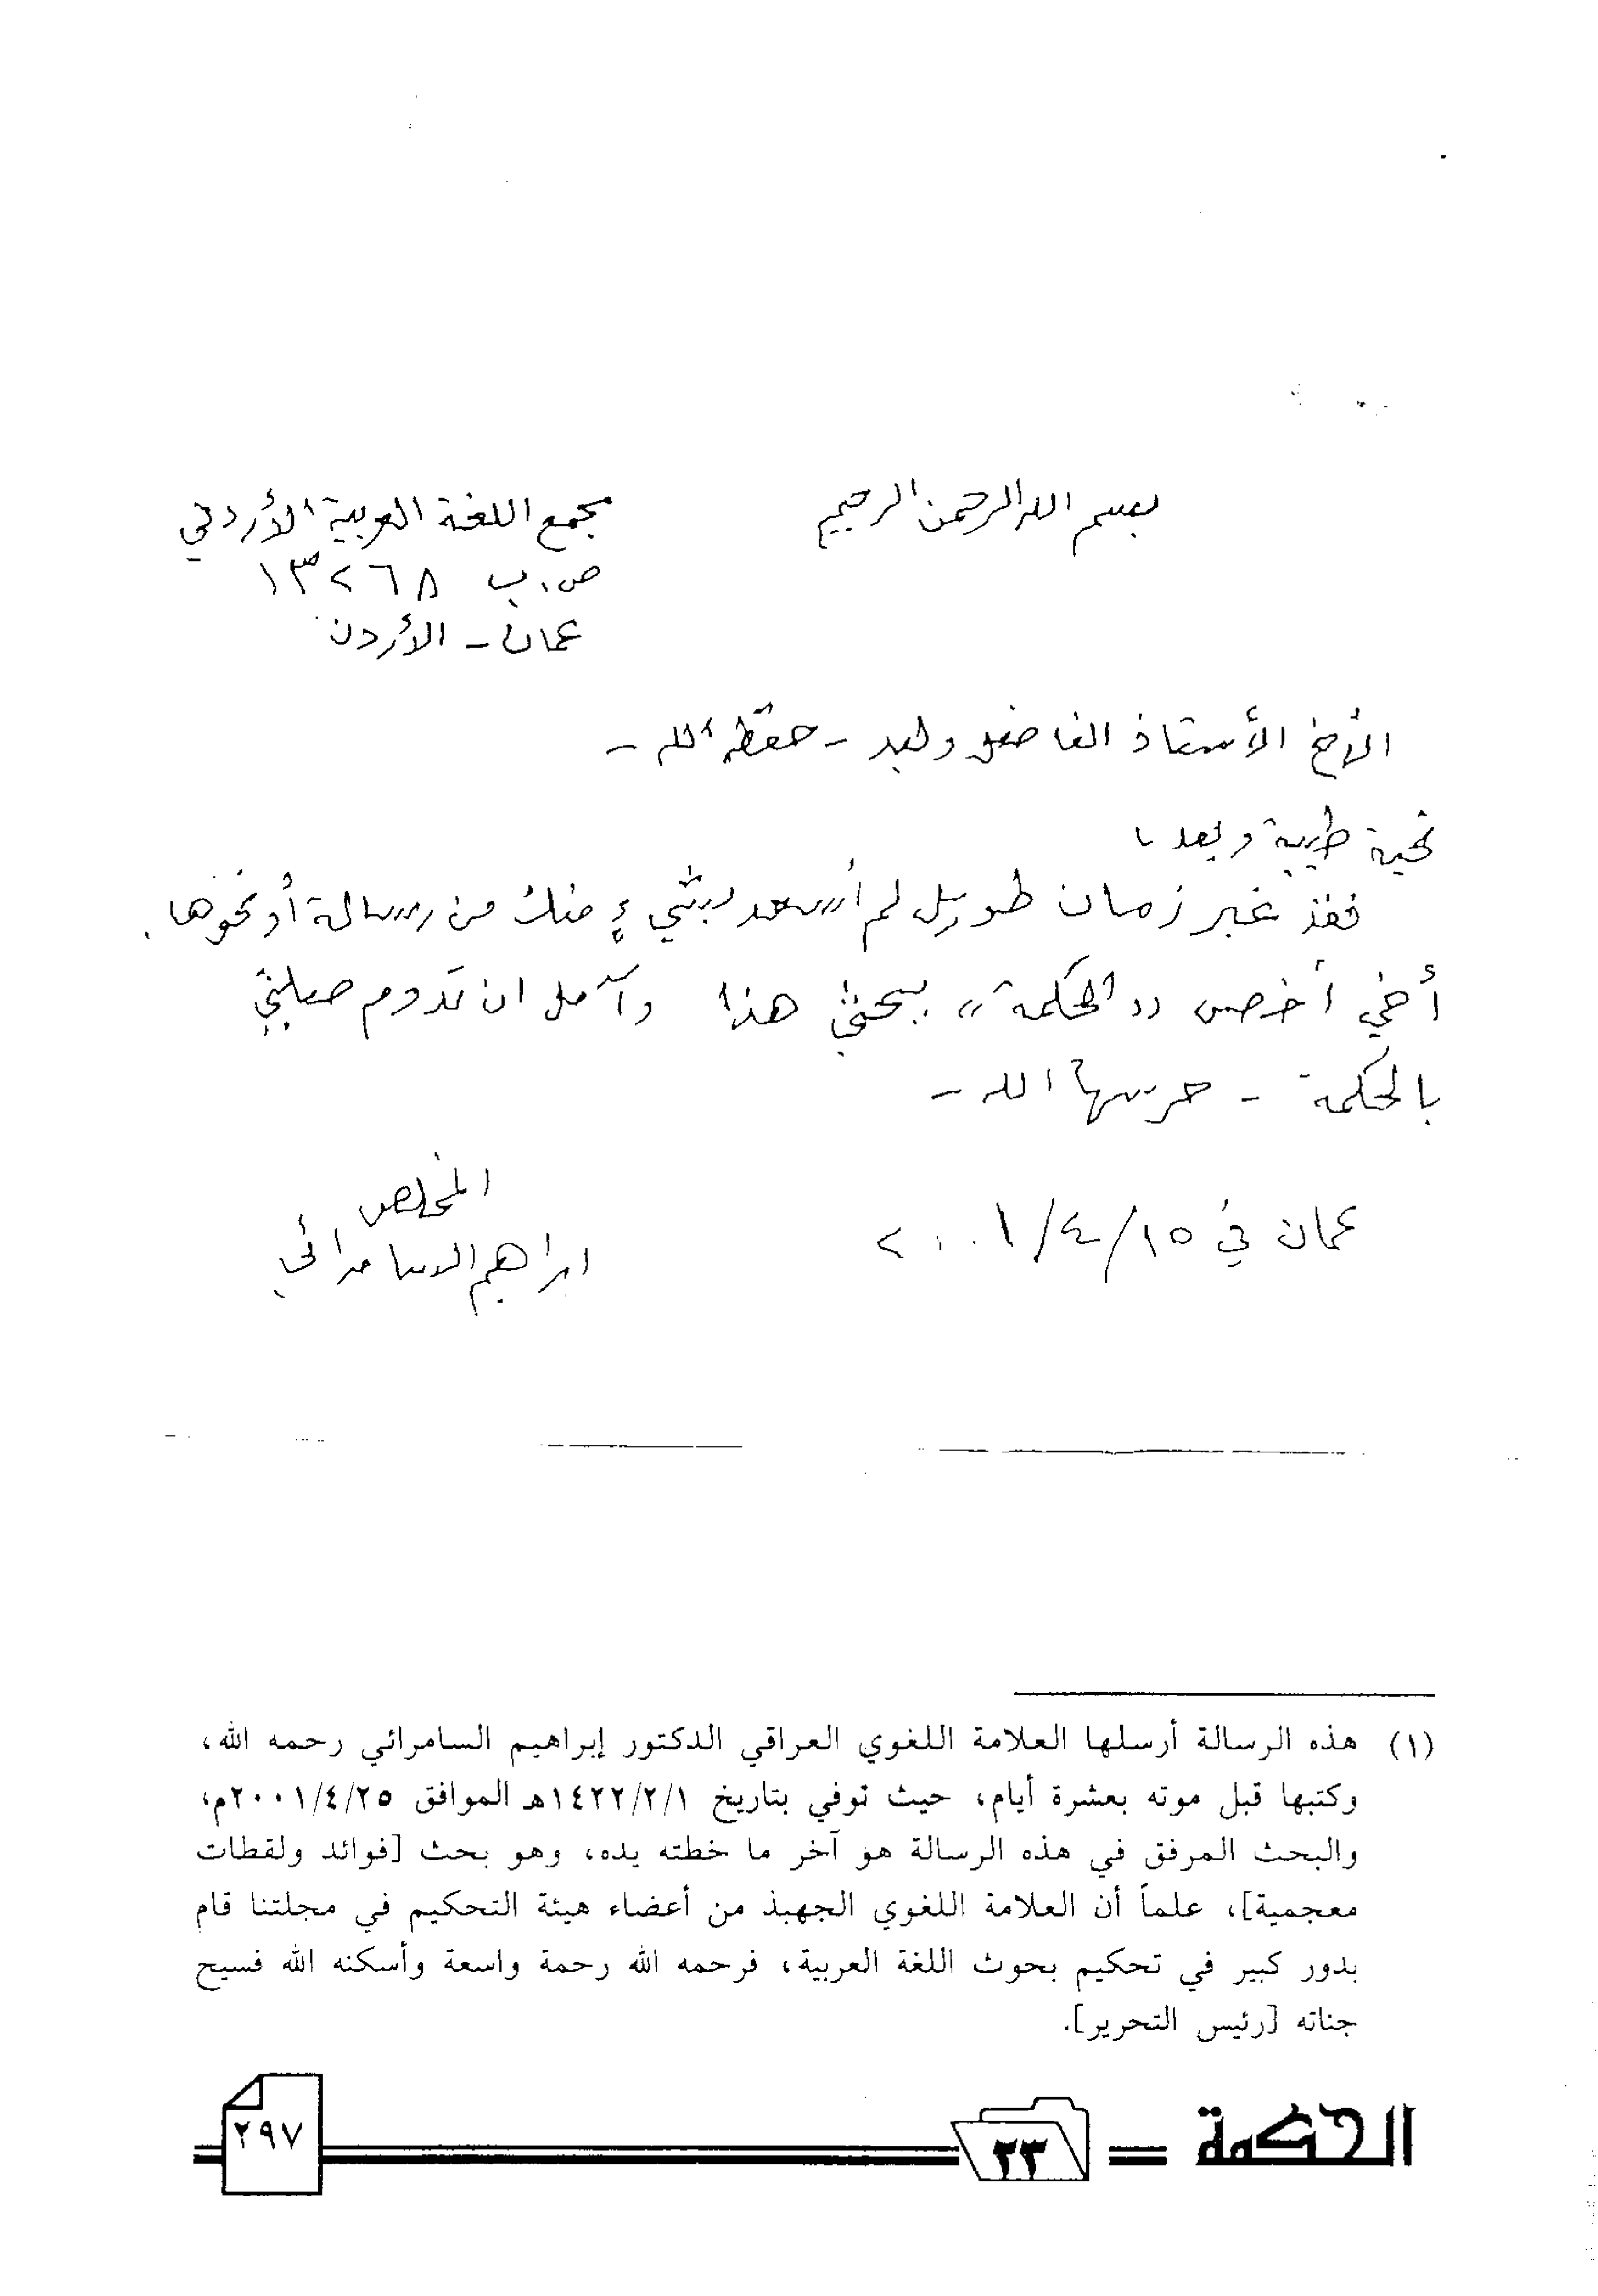 بسم الله الرحمن الرحيم
مجمع اللغة العربية الأردني
ص.ب ١٣٢٦٨
عمان - الأردن
الأخ الأستاذ الفاضل وليد - حفظه الله -
تحية طيبة وبعد،
فقد غبر زمان طويل لم أسعد بشيءٍ منك من رسالة أو نحوها.
أخي أخص «الحكمة» ببحثي هذا وآمل ان تدوم صلتي
بالحكمة - حرسها الله -
المخلص
عمان في ٢٠٠١/٤/١٥
ابراهيم السامرائي
(١) هذه الرسالة أرسلها العلامة اللغوي العراقي الدكتور إبراهيم السامرائي رحمه الله،
وكتبها قبل موته بعشرة أيام، حيث توفي بتاريخ ١٤٢٢/٢/١هـ الموافق ٢٠٠١/٤/٢٥م،
والبحث المرفق في هذه الرسالة هو آخر ما خطته يده، وهو بحث [فوائد ولقطات
معجمية]، علماً أن العلامة اللغوي الجهبذ من أعضاء هيئة التحكيم في مجلتنا قام
بدور كبير في تحكيم بحوث اللغة العربية، فرحمه الله رحمة واسعة وأسكنه الله فسيح
جناته [رئيس التحرير].
الحكمة ٢٣ ٢٩٧